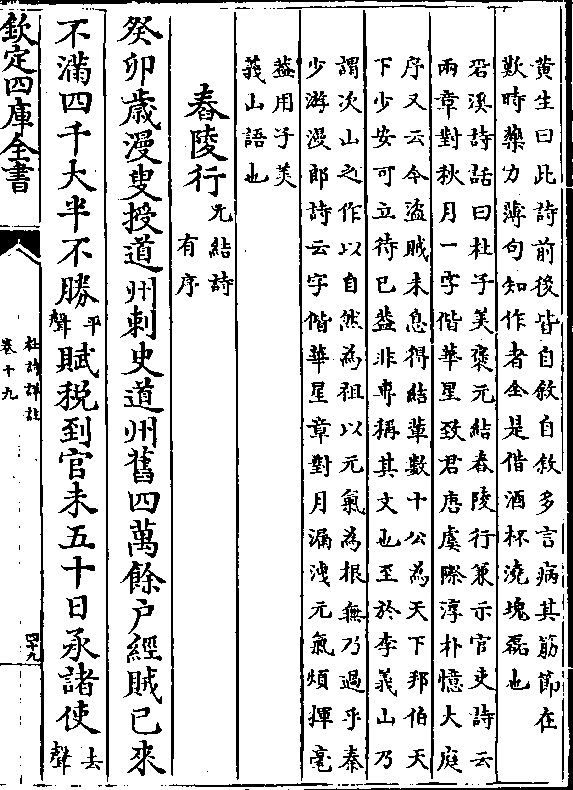 黃生曰此詩前後皆自敘自敘多言病其筋節在
歎時藥力薄句知作者全是借酒杯澆塊磊也
䂬溪詩話曰杜子美褒元結舂陵行兼示官吏詩云
兩章對秋月一字偕華星致君唐虞際淳朴憶大庭
序又云今盜賊未息得結輩數十公為天下邦伯天
下少安可立待已葢非專稱其文也至於李義山乃
謂次山之作以自然為祖以元氣為根無乃過乎秦
少游漫郎詩云字偕華星章對月漏洩元氣煩揮毫
葢用子美
義山語也
舂陵行
元結詩
有序
癸卯歲漫叟授道州刺史道州舊四萬餘戶經賊已來
不滿四千大半不勝平聲賦稅到官未五十日承諸使去聲
欽定四庫全書
杜詩詳註
卷十九
四十九